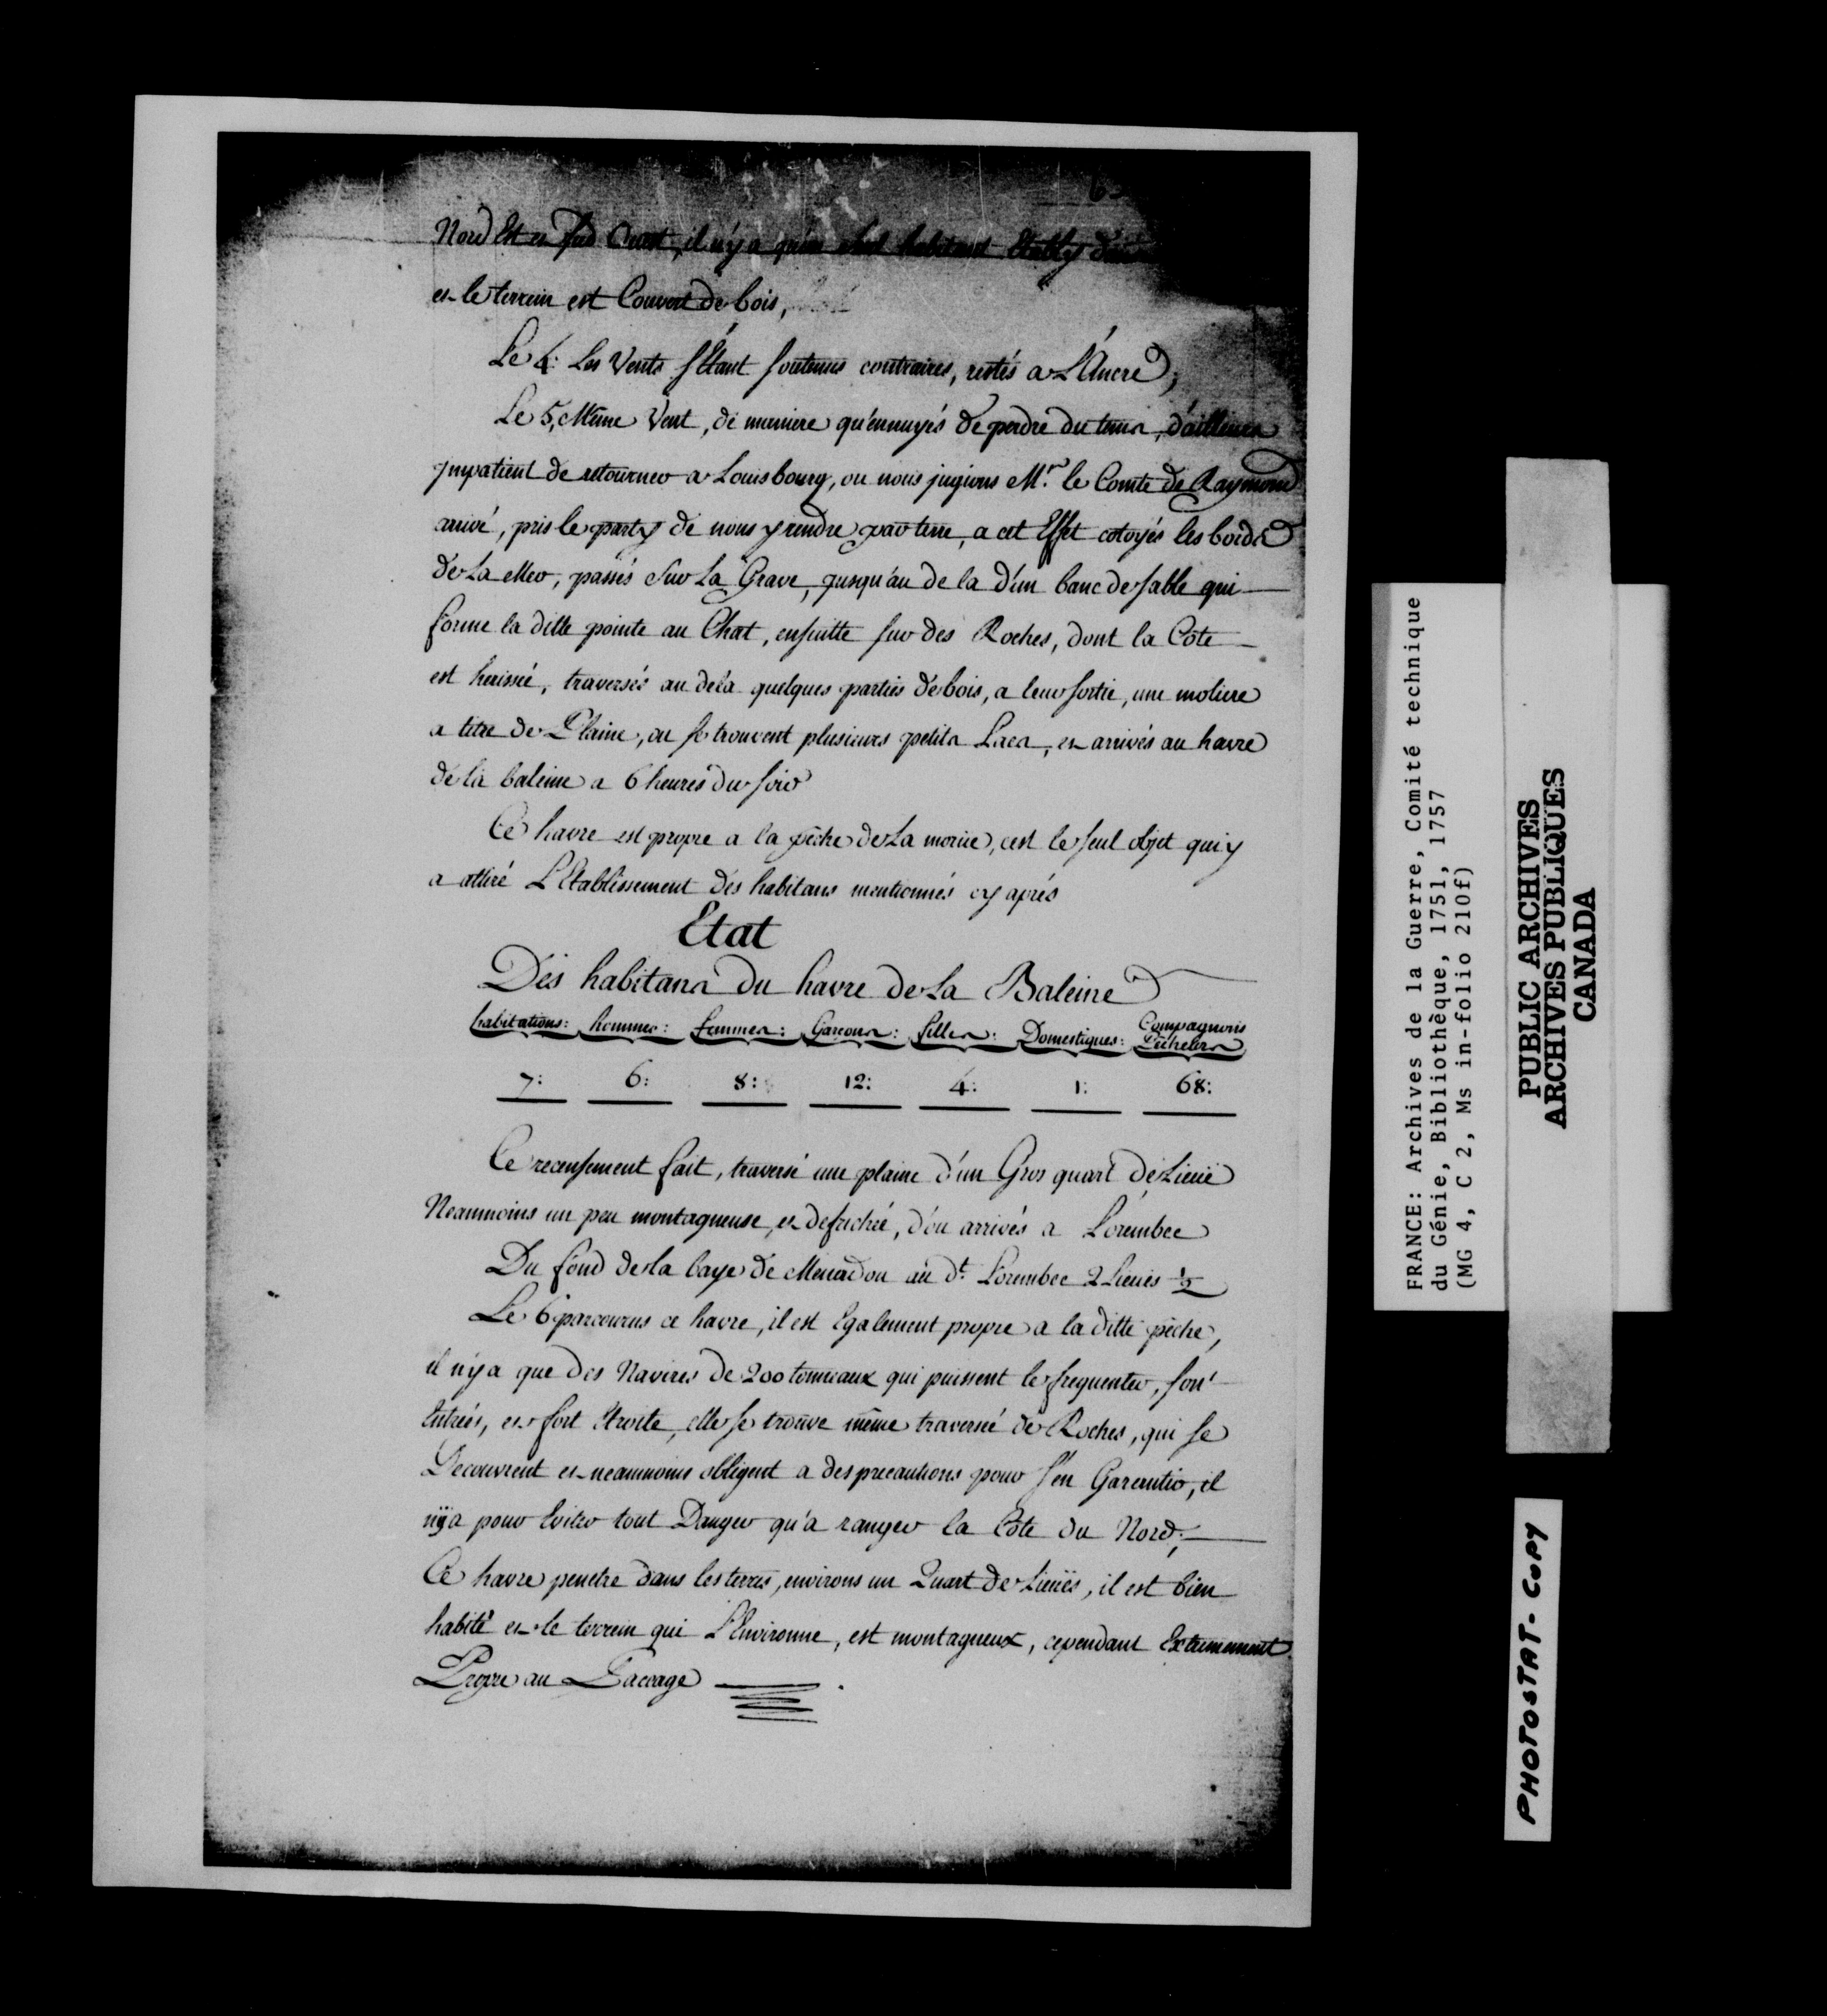 Nord Est et Sud Ouest, il n'y a qu'un seul habitant Etably
et le terrein est Couvert de bois,
Le 4: Les Vents s'Étant soutenus contraires, restés a L'Ancre,
Le 5, Même Vent, de maniere qu'ennuyés de perdre du tems, d'ailleurs
jmpatient de retourner a Louisbourg, ou nous jugions Mr. le Comte de Raymond
arrivé, pris le party de nous y rendre par terre, a cet Effet cotoyés les bords
de La Mer, passés Sur La Grave, jusqu'au de la d'un banc de sable qui
forme la ditte pointe au Chat, ensuitte sur des Roches, dont la Côte
est herissé, traversés au dela quelques parties de bois, a leur sortie, une moliere
a titre de Plaine, ou se trouvent plusieurs petits Lacs, et arrivés au havre
de la baleine a 6 heures du soir
Ce havre est propre a la pêche de La morüe, cest le seul objet qui y
a attiré L'Etablissement des habitans mentionnés cy aprés
Etat
Des habitans du havre de La Baleine
habitations: hommes: femmes: Garçons: filles: Domestiques: Compagnons Pêcheurs
7: 6: 8: 12: 4: 1: 68:
Ce recensement fait, traversé une plaine d'un Gros quart de Lieüe
Neanmoins un peu montagneuse, et defriché, d'ou arrivés a Lorembec
Du fond de la baye de Menadou au dt. Lorembec 2 Lieües 1/2
Le 6 parcourus ce havre, il est Egalement propre a la ditte pêche,
il n'y a que des Navires de 200 tonneaux qui puissent le frequenter, son
Entrés, est fort Etroite, elle se trouve même traversé de Roches, qui se
Decouvrent et neanmoins obligent a des precautions pour s'en Garentir, il
n'y a pour Eviter tout Danger qu'a ranger la Côte du Nord,
Ce havre penetre dans les terres, environs un Quart de Lieües, il est bien
habité et le terrein qui L'Environne, est montagneux, cependant Extremement
Propre au Pacage
FRANCE: Archives de la Guerre, Comité technique
du Génie, Bibliothèque, 1751, 1757
(MG 4, C 2, Ms in-folio 210f)
PUBLIC ARCHIVES
ARCHIVES PUBLIQUES
CANADA
PHOTOSTAT-COPY